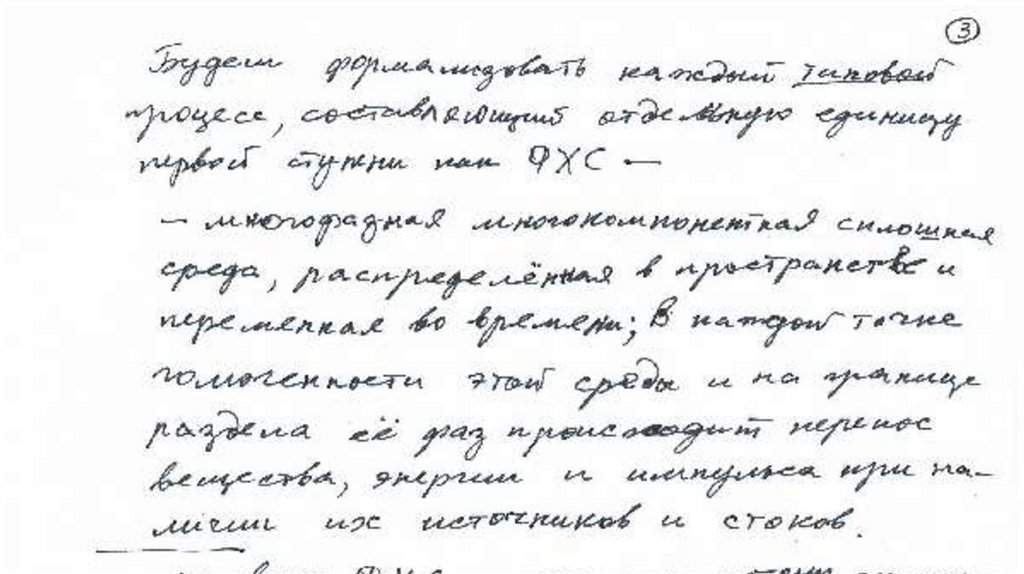 3
Будем формализовать каждый типовой
процесс, составляющий отдельную единицу
первой ступени как ФХС —
— многофазная многокомпонентная сплошная
среда, распределённая в пространстве и
переменная во времени; В каждой точке
гомогенности этой среды и на границе
раздела её фаз происходит перенос
вещества, энергии и импульса при на-
личии их источников и стоков.
ФХС